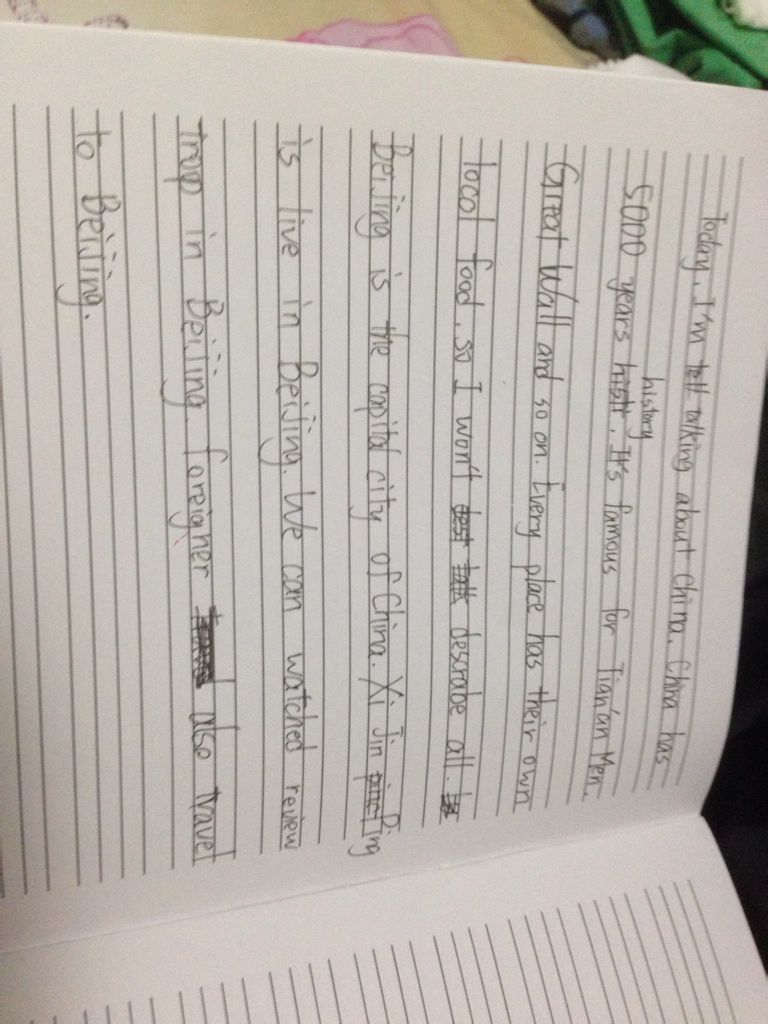 Today, I'm talking about China. China has
5000 years history. It's famous for Tian'an Men.
Great Wall and so on. Every place has their own
local food. so I won't describe all.
Beijing is the capital city of China. Xi Jin Ping
is live in Beijing. We can watched review
troop in Beijing. foreigner also travel
to Beijing.